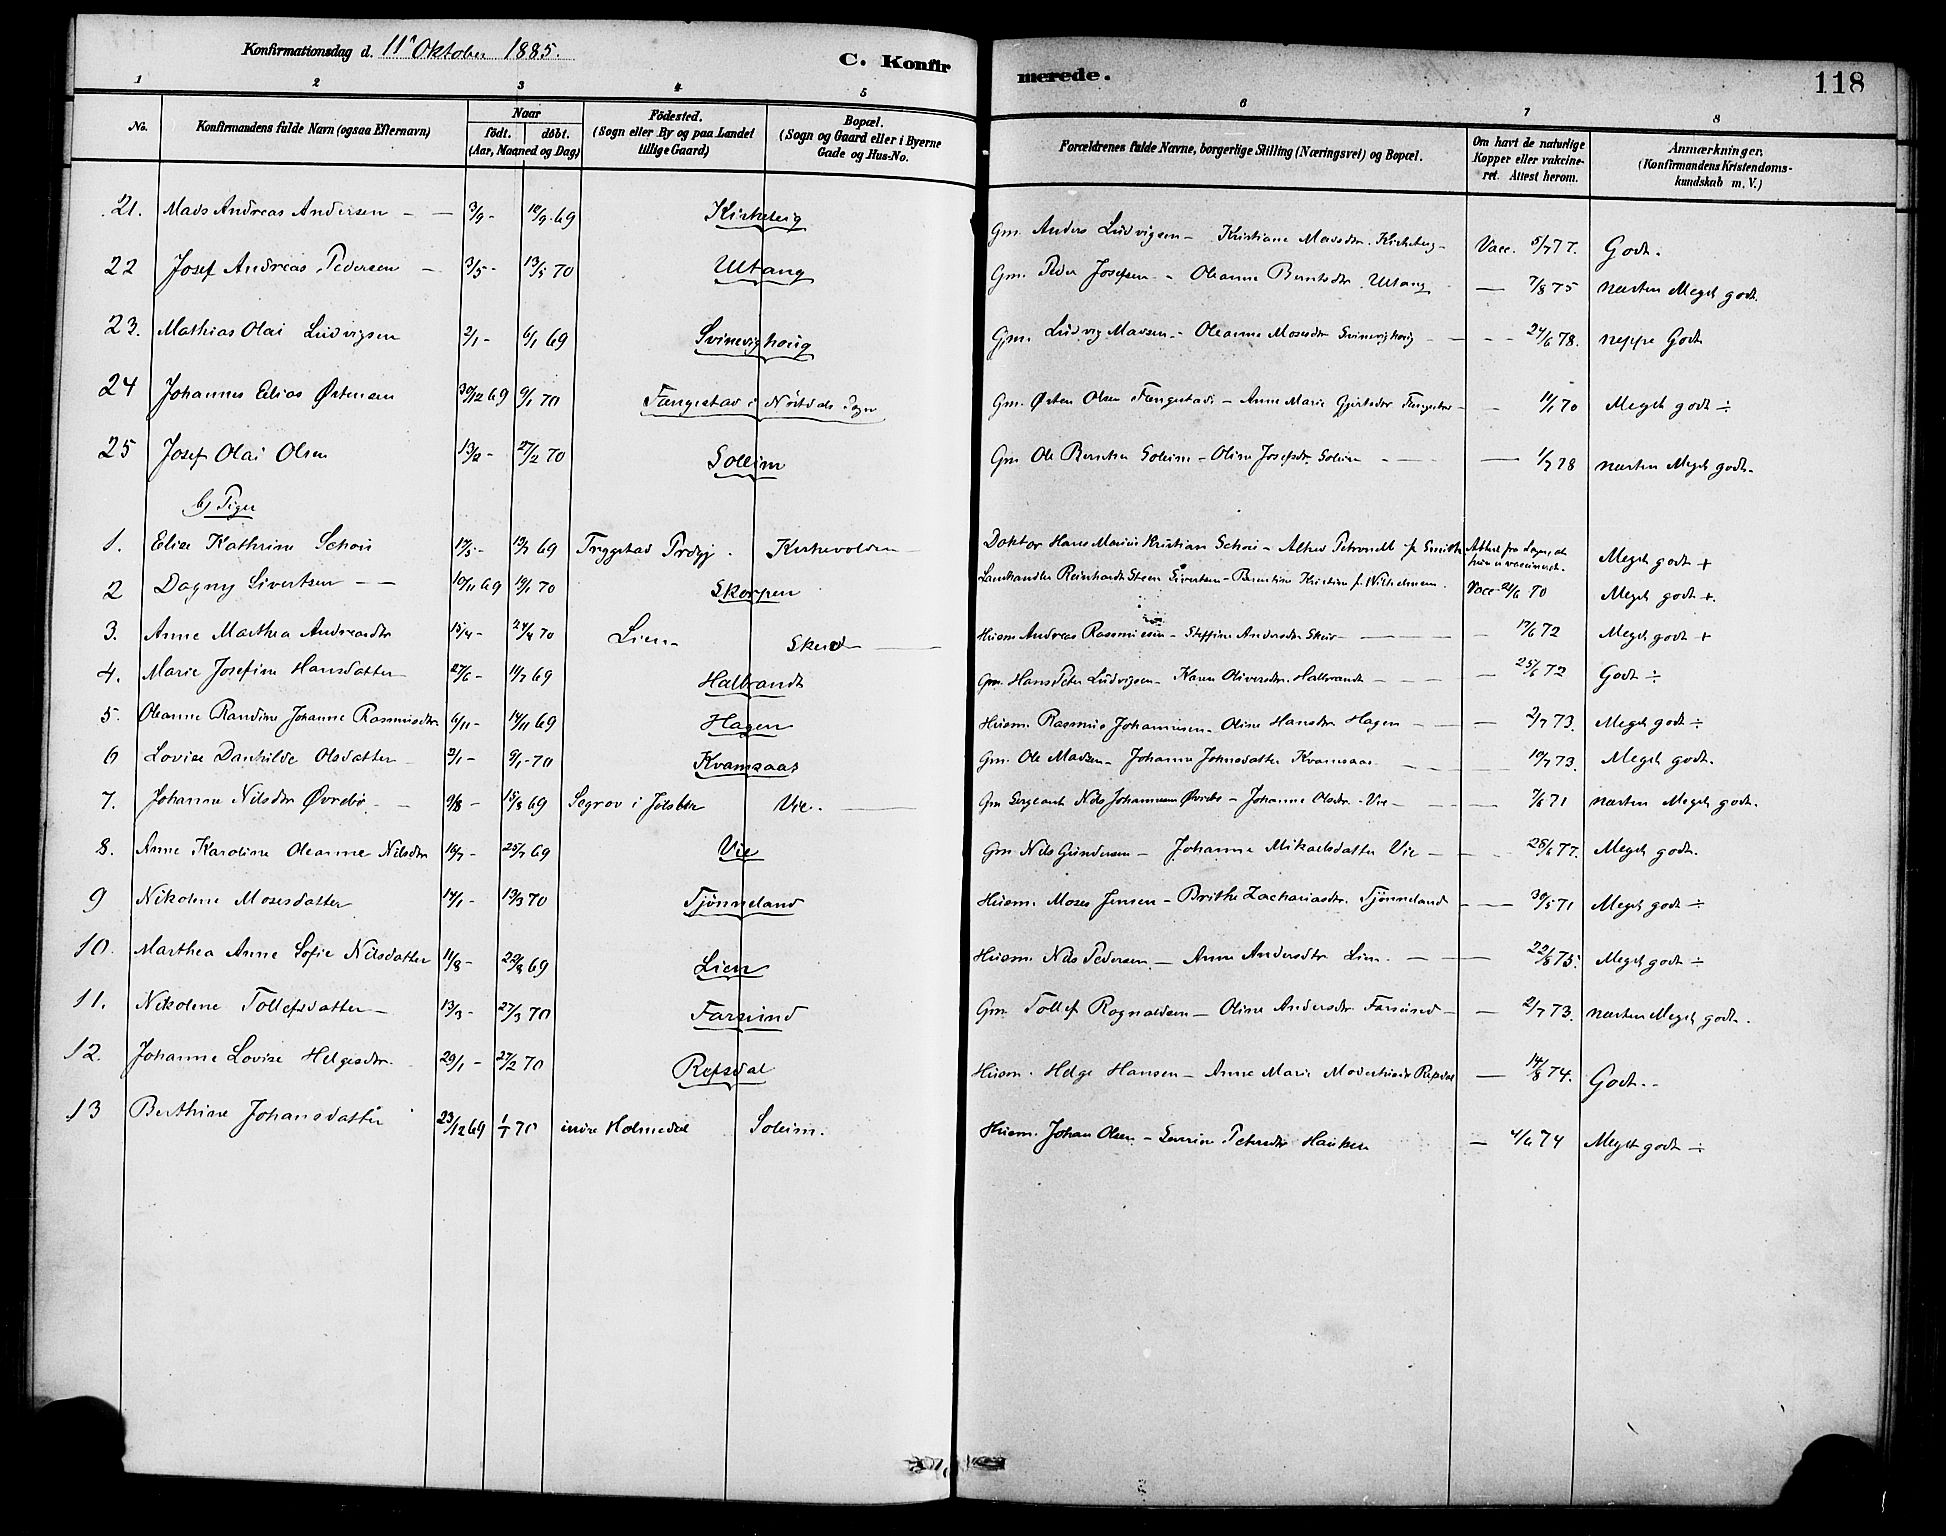 Konfirmationsdag d. 11' Oktober 1885. C. Konfir merede. 118
1 2 3 4 5 6 7 8
No. Konfirmandens fulde Navn (ogsaa Efternavn) Naar født. døbt. (Aar, Maaned og Dag) Fødested. (Sogn eller By og paa Landet tillige Gaard) Bopæl. (Sogn og Gaard eller i Byerne Gade og Hus-No. Forældrenes fulde Navne, borgerlige Stilling (Næringsvei) og Bopæl. Om havt de naturlige Kopper eller vakcineret. Attest herom. Anmærkninger. (Konfirmandens Kristendomskundskab m. V.)
21. Mads Andreas Andersen - - 3/9 - 19/9 69 Kirkeleig Gm. Anders Ludvigsen - Kristiane Madsdtr. Vacc. 5/7 77. Godt.
22 Josef Andreas Pedersen - 3/5 - 13/5 70 Utvang Gm. Peder Josefsen - Oleanne Berntsdtr. - 7/8 75 næsten Meget godt.
23. Mathias Olai Ludvigsen 2/1 - 6/1 69 Svinevighoug Gm. Ludvig Madsen - Oleanne Mosesdtr Svinevighoug - 24/6 78. neppe Godt
24 Johannes Elias Østensen 30/12 69 9/1 70 Fængestad i Gm. Østen Olsen Fængestad - Anne Marie - 70 Meget godt ÷
25 Josef Olai Olsen 13/2 - 27/2 70 Solheim Gm Ole Berntsen Soleim - Oline Josefsdtr. Soleim - 1/7 78 næsten Meget godt.
b) Piger
1. Elise Kathrine Schou 17/5 - 19/7 69 Tryggstad Prdgj. Kirkevolden - Doktor Hans Marius Kristian Schou - Petronelle f. Smith Meget godt +
2 Dagny Sivertsen - - 10/11 69 19/1 70 Skorpen Landhandler Reinhardt Steen Sivertsen - Berntine Kristine f. Wilhelmsen. Vacc 21/6 70 Meget godt +.
3. Anne Marthea Andreasdtr 15/4 - 24/4 70 Lien - Skeid - Husm Andreas Rasmussen - Steffine Andersdtr - 17/6 72 Meget godt +
4. Marie Josefine Hansdatter 27/6 - 11/7 69 Halbrandt Gm. Hans Peter Ludvigsen - Karen Oliversdtr. Halbrandt - 25/6 72 Godt ÷
5. Oleanne Randine Johanne Rasmusdtr 6/11 - 14/11 69 Hagen Husm. Rasmus Johannesen - Oline Hansdtr Hagen - 2/7 73. Meget godt ÷
6 Lovise Danhilde Olsdatter 2/1 - 9/1 - 70 Kvamsaas Gm. Ole Madsen - Johanne Johnsdatter Kvamsaas - 10/7 73. Meget godt.
7. Johanne Nilsdtr Øvrebø - 9/8 - 15/8 69 Segrov i Jølster Vie. - Gm Sergeant Nils Johannesen Øvrebø - Johanne Olsdtr. Vie - 7/6 71 næsten Meget godt.
8. Anne Karoline Oleanne Nilsdtr 16/7 - 25/7 69 Vie Gm Nils Gundersen - Johanne Mikaelsdatter Vie - 28/6 77. Meget godt.
9 Nikoline Mosesdatter 14/1 - 13/3 70 Tjønneland Husm. Moses Jensen - Brithe Zachariasdtr. Tjønneland - 30/5 71 Meget godt ÷
10. Marthea Anne Sofie Nilsdatter 11/8 - 22/8 69 Lien Husm. Nils Pedersen - Anne Andersdtr Lien. - 22/8 75. Meget godt ÷
11. Nikoline Tollefsdatter - 13/3 - 27/3 70 Farsund Gm. Tollef Rognaldsen - Oline Andersdtr Farsund - 2/7 73. næsten Meget godt.
12. Johanne Lovise Helgesdtr. 29/1 - 27/2 70 Refsdal Husm. Helge Hansen - Anne Marie Refsdal - 14/8 74. Godt. -
13 Berthine Johansdatter 23/12 69 1/1 70 indre Holmedal Soleim. Husm. Johan Olsen - Severine Petersdtr Hauken - 4/6 74 Meget godt ÷